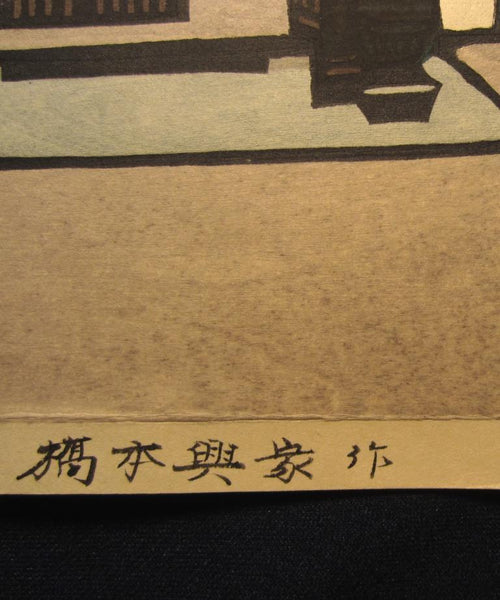 橋本興家作